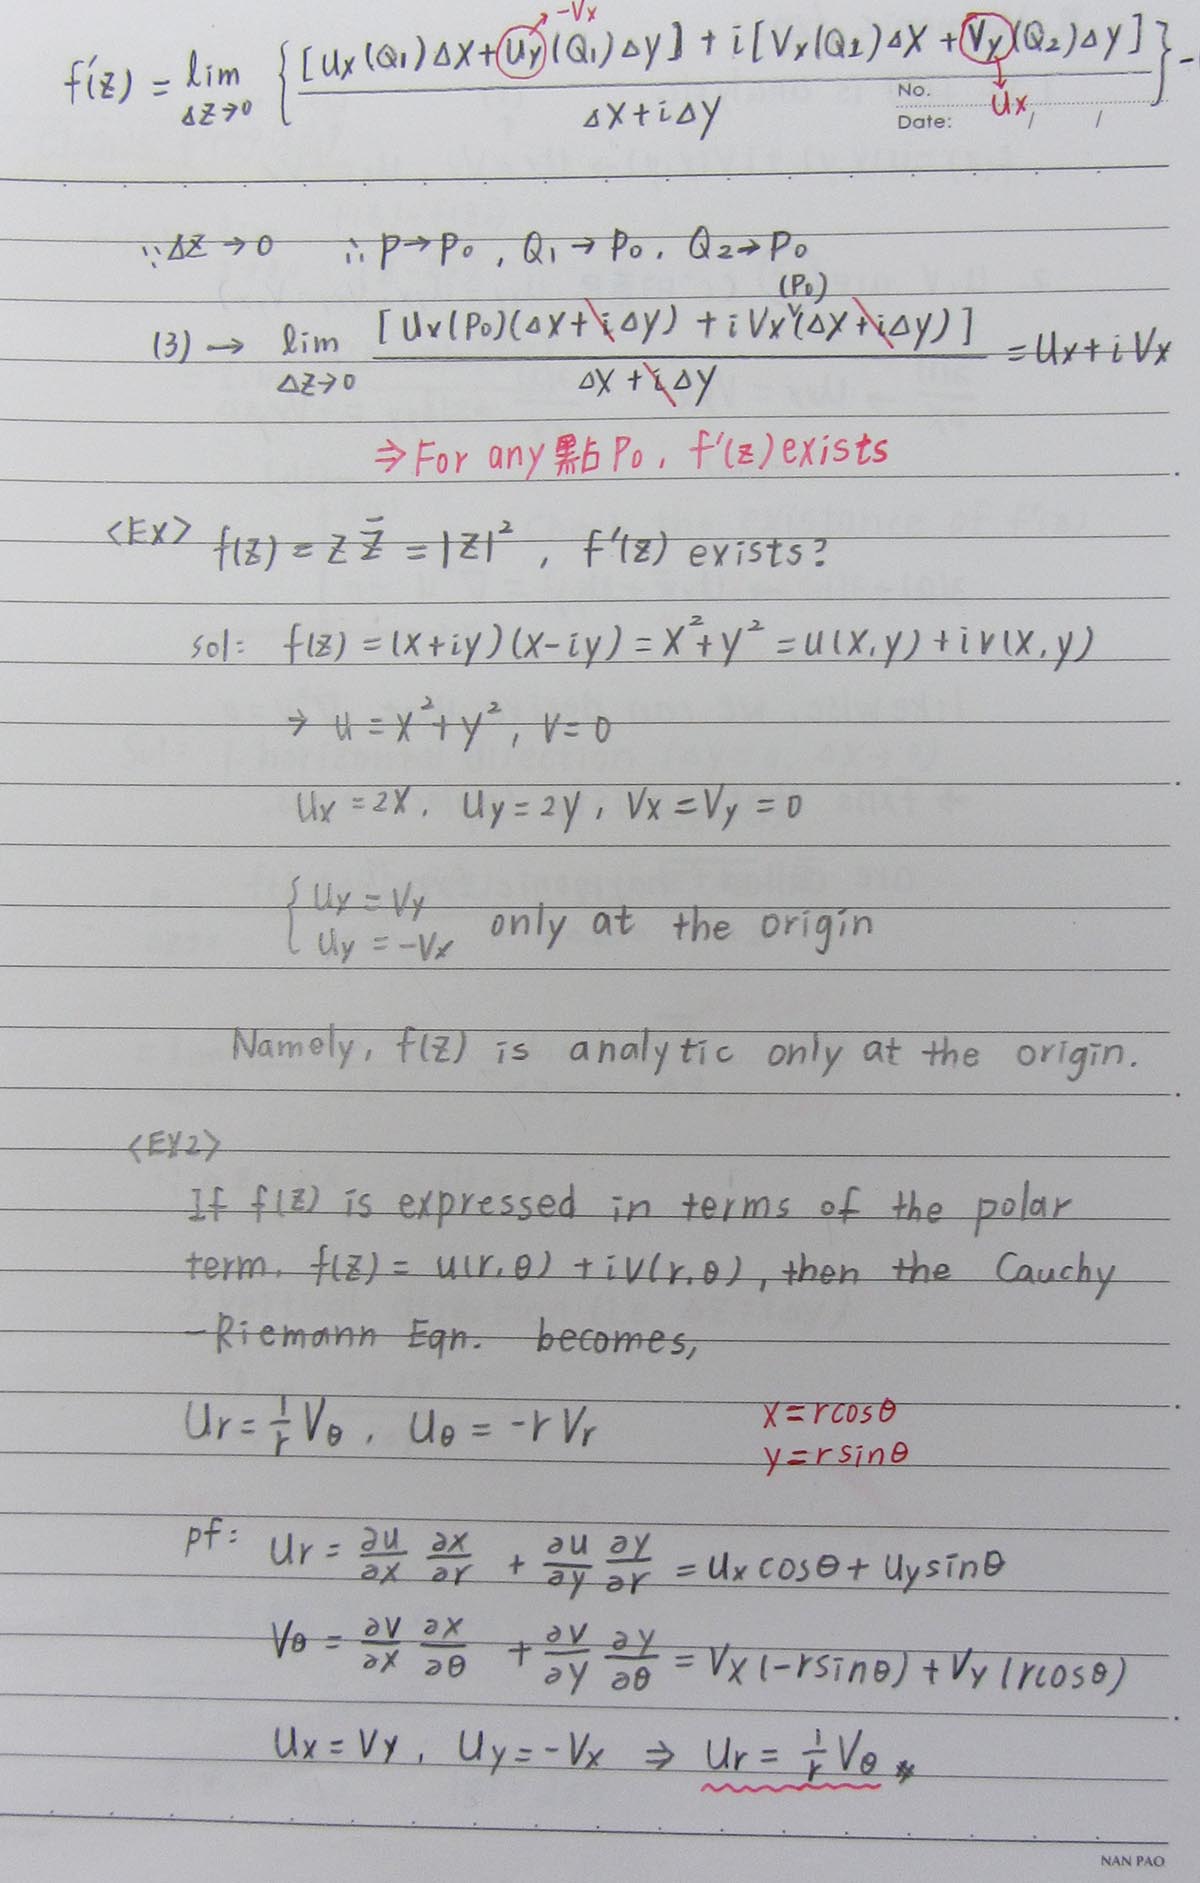 -Vx
f'(z) = lim Δz→0 { [Ux(Q1)Δx + Uy(Q1)Δy] + i[Vx(Q2)Δx + Vy(Q2)Δy] / Δx + iΔy } -
Ux
No.
Date: / /
∵ Δz → 0 ∴ p → p0 , Q1 → p0 , Q2 → p0
(P0)
(3) → lim Δz→0 [Ux(P0)(Δx + iΔy) + iVx(Δx + iΔy)] / Δx + iΔy = Ux + iVx
⇒ For any 點 P0 , f'(z) exists
<Ex> f(z) = z z̄ = |z|² , f'(z) exists?
sol: f(z) = (x+iy)(x-iy) = x² + y² = u(x,y) + iv(x,y)
→ u = x² + y² , v = 0
Ux = 2x , Uy = 2y , Vx = Vy = 0
{ Ux = Vy
Uy = -Vx only at the origin
Namely, f(z) is analytic only at the origin.
<EX2>
If f(z) is expressed in terms of the polar
term. f(z) = u(r,θ) + iv(r,θ), then the Cauchy
-Riemann Eqn. becomes,
Ur = 1/r Vθ , Uθ = -r Vr
x = rcosθ
y = rsinθ
pf: Ur = ∂u/∂x ∂x/∂r + ∂u/∂y ∂y/∂r = Ux cosθ + Uy sinθ
Vθ = ∂v/∂x ∂x/∂θ + ∂v/∂y ∂y/∂θ = Vx(-rsinθ) + Vy(rcosθ)
Ux = Vy , Uy = -Vx ⇒ Ur = 1/r Vθ #
NAN PAO